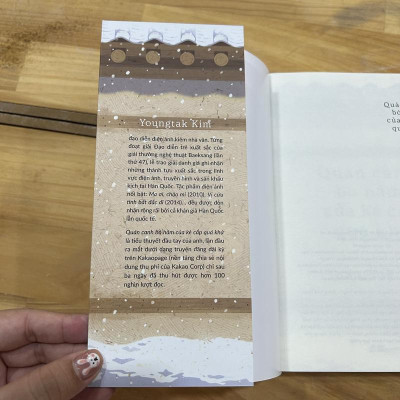 Youngtak Kim
đạo diễn điện ảnh kiêm nhà văn. Từng
đoạt giải Đạo diễn trẻ xuất sắc của
giải thưởng nghệ thuật Baeksang (lần
thứ 47), lễ trao giải danh giá ghi nhận
những thành tựu xuất sắc trong lĩnh
vực điện ảnh, truyền hình và sân khấu
kịch tại Hàn Quốc. Tác phẩm điện ảnh
nổi bật: Ma ơi, chào mi (2010), Vì cứu
tinh bất đắc dĩ (2014)... đều được đón
nhận rộng rãi bởi cả khán giả Hàn Quốc
lẫn quốc tế.
Quán canh bò hầm của kẻ cắp quá khứ
là tiểu thuyết đầu tay của anh, lần đầu
ra mắt dưới dạng truyện đăng dài kỳ
trên Kakaopage (nền tảng chia sẻ nội
dung thu phí của Kakao Corp) chỉ sau
ba ngày đã thu hút được hơn 100
nghìn lượt đọc.
Quá
bò
của
qu